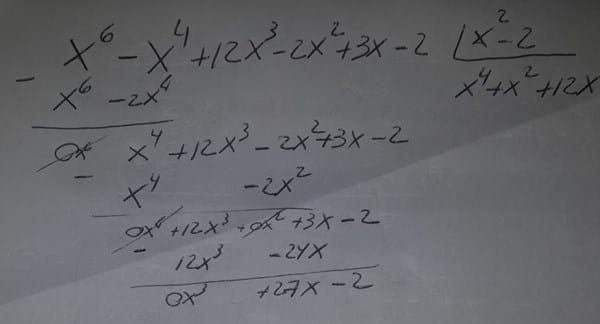 x⁶ - x⁴ + 12x³ - 2x² + 3x - 2 | x² - 2
- x⁶ - 2x⁴ x⁴ + x² + 12x
0x⁶ x⁴ + 12x³ - 2x² + 3x - 2
- x⁴ - 2x²
0x⁴ + 12x³ + 0x² + 3x - 2
- 12x³ - 24x
0x³ + 27x - 2